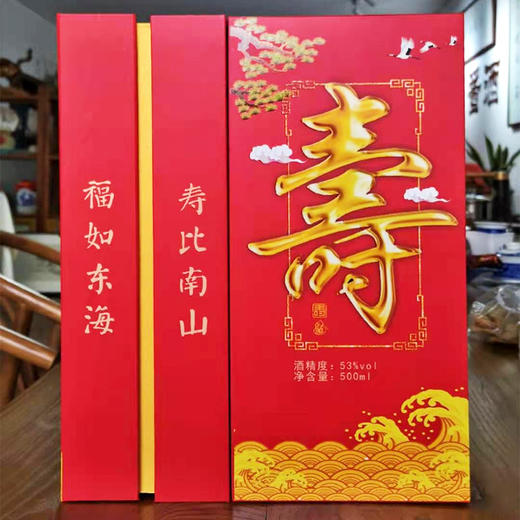 福如东海
寿比南山
寿
酒精度：53%vol
净含量：500ml